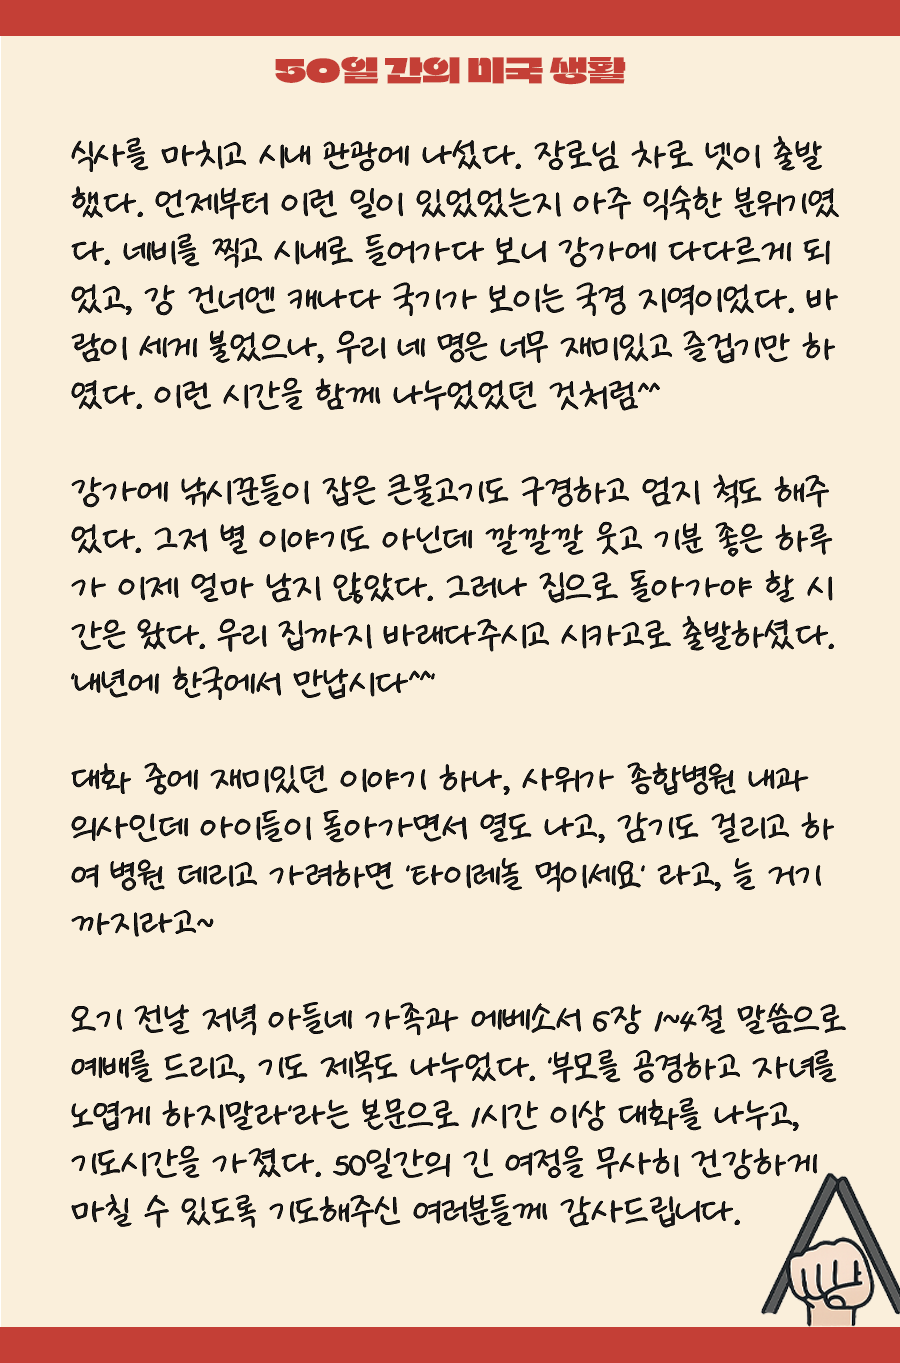 50일 간의 미국 생활
식사를 마치고 시내 관광에 나섰다. 장로님 차로 넷이 출발
했다. 언제부터 이런 일이 있었었는지 아주 익숙한 분위기였
다. 네비를 찍고 시내로 들어가다 보니 강가에 다다르게 되
었고, 강 건너엔 캐나다 국기가 보이는 국경 지역이었다. 바
람이 세게 불었으나, 우리 네 명은 너무 재미있고 즐겁기만 하
였다. 이런 시간을 함께 나누었었던 것처럼^^
강가에 낚시꾼들이 잡은 큰물고기도 구경하고 엄지 척도 해주
었다. 그저 별 이야기도 아닌데 깔깔깔 웃고 기분 좋은 하루
가 이제 얼마 남지 않았다. 그러나 집으로 돌아가야 할 시
간은 왔다. 우리 집까지 바래다주시고 시카고로 출발하셨다.
'내년에 한국에서 만납시다^^'
대화 중에 재미있던 이야기 하나, 사위가 종합병원 내과
의사인데 아이들이 돌아가면서 열도 나고, 감기도 걸리고 하
여 병원 데리고 가려하면 '타이레놀 먹이세요' 라고, 늘 거기
까지라고~
오기 전날 저녁 아들네 가족과 에베소서 6장 1~4절 말씀으로
예배를 드리고, 기도 제목도 나누었다. '부모를 공경하고 자녀를
노엽게 하지말라'라는 본문으로 1시간 이상 대화를 나누고,
기도시간을 가졌다. 50일간의 긴 여정을 무사히 건강하게
마칠 수 있도록 기도해주신 여러분들께 감사드립니다.